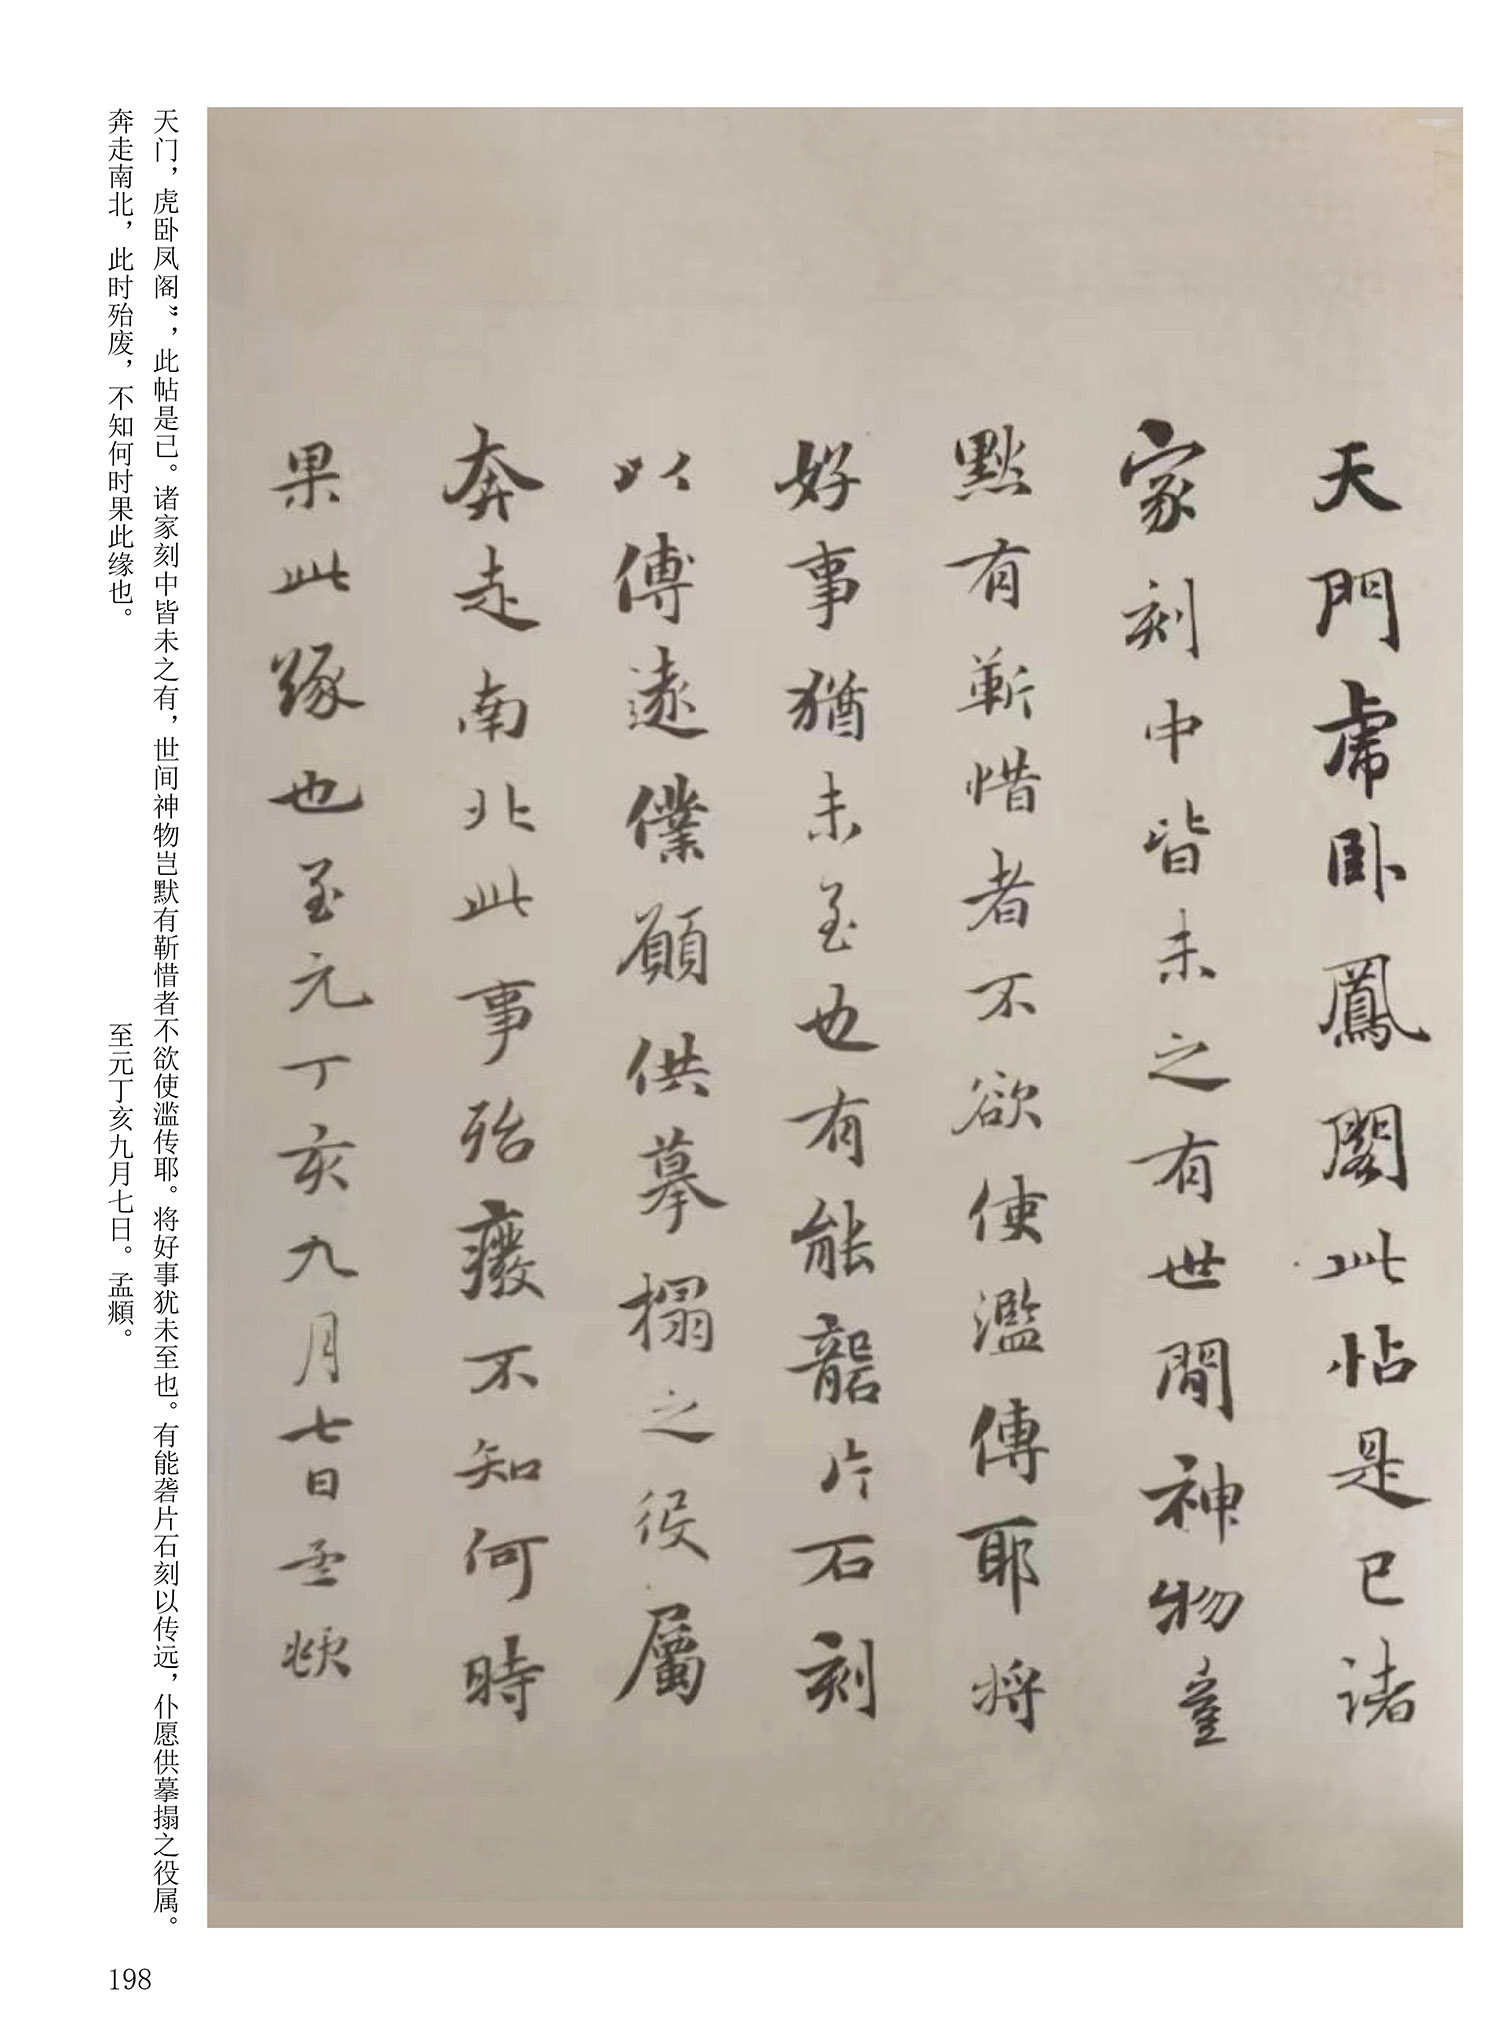 天門虎卧鳳閣此帖是已諸
家刻中皆未之有世間神物豈
默有靳惜者不欲使濫傳耶将
好事猶未至也有能礱片石刻
以傳遠僕願供摹搨之役屬
奔走南北此事殆癈不知何時
果此緣也至元丁亥九月七日孟頫
天门，虎卧凤阁”，此帖是已。诸家刻中皆未之有，世间神物岂默有靳惜者不欲使滥传耶。将好事犹未至也。有能砻片石刻以传远，仆愿供摹搨之役属。
奔走南北，此时殆废，不知何时果此缘也。
至元丁亥九月七日。孟頫。
198